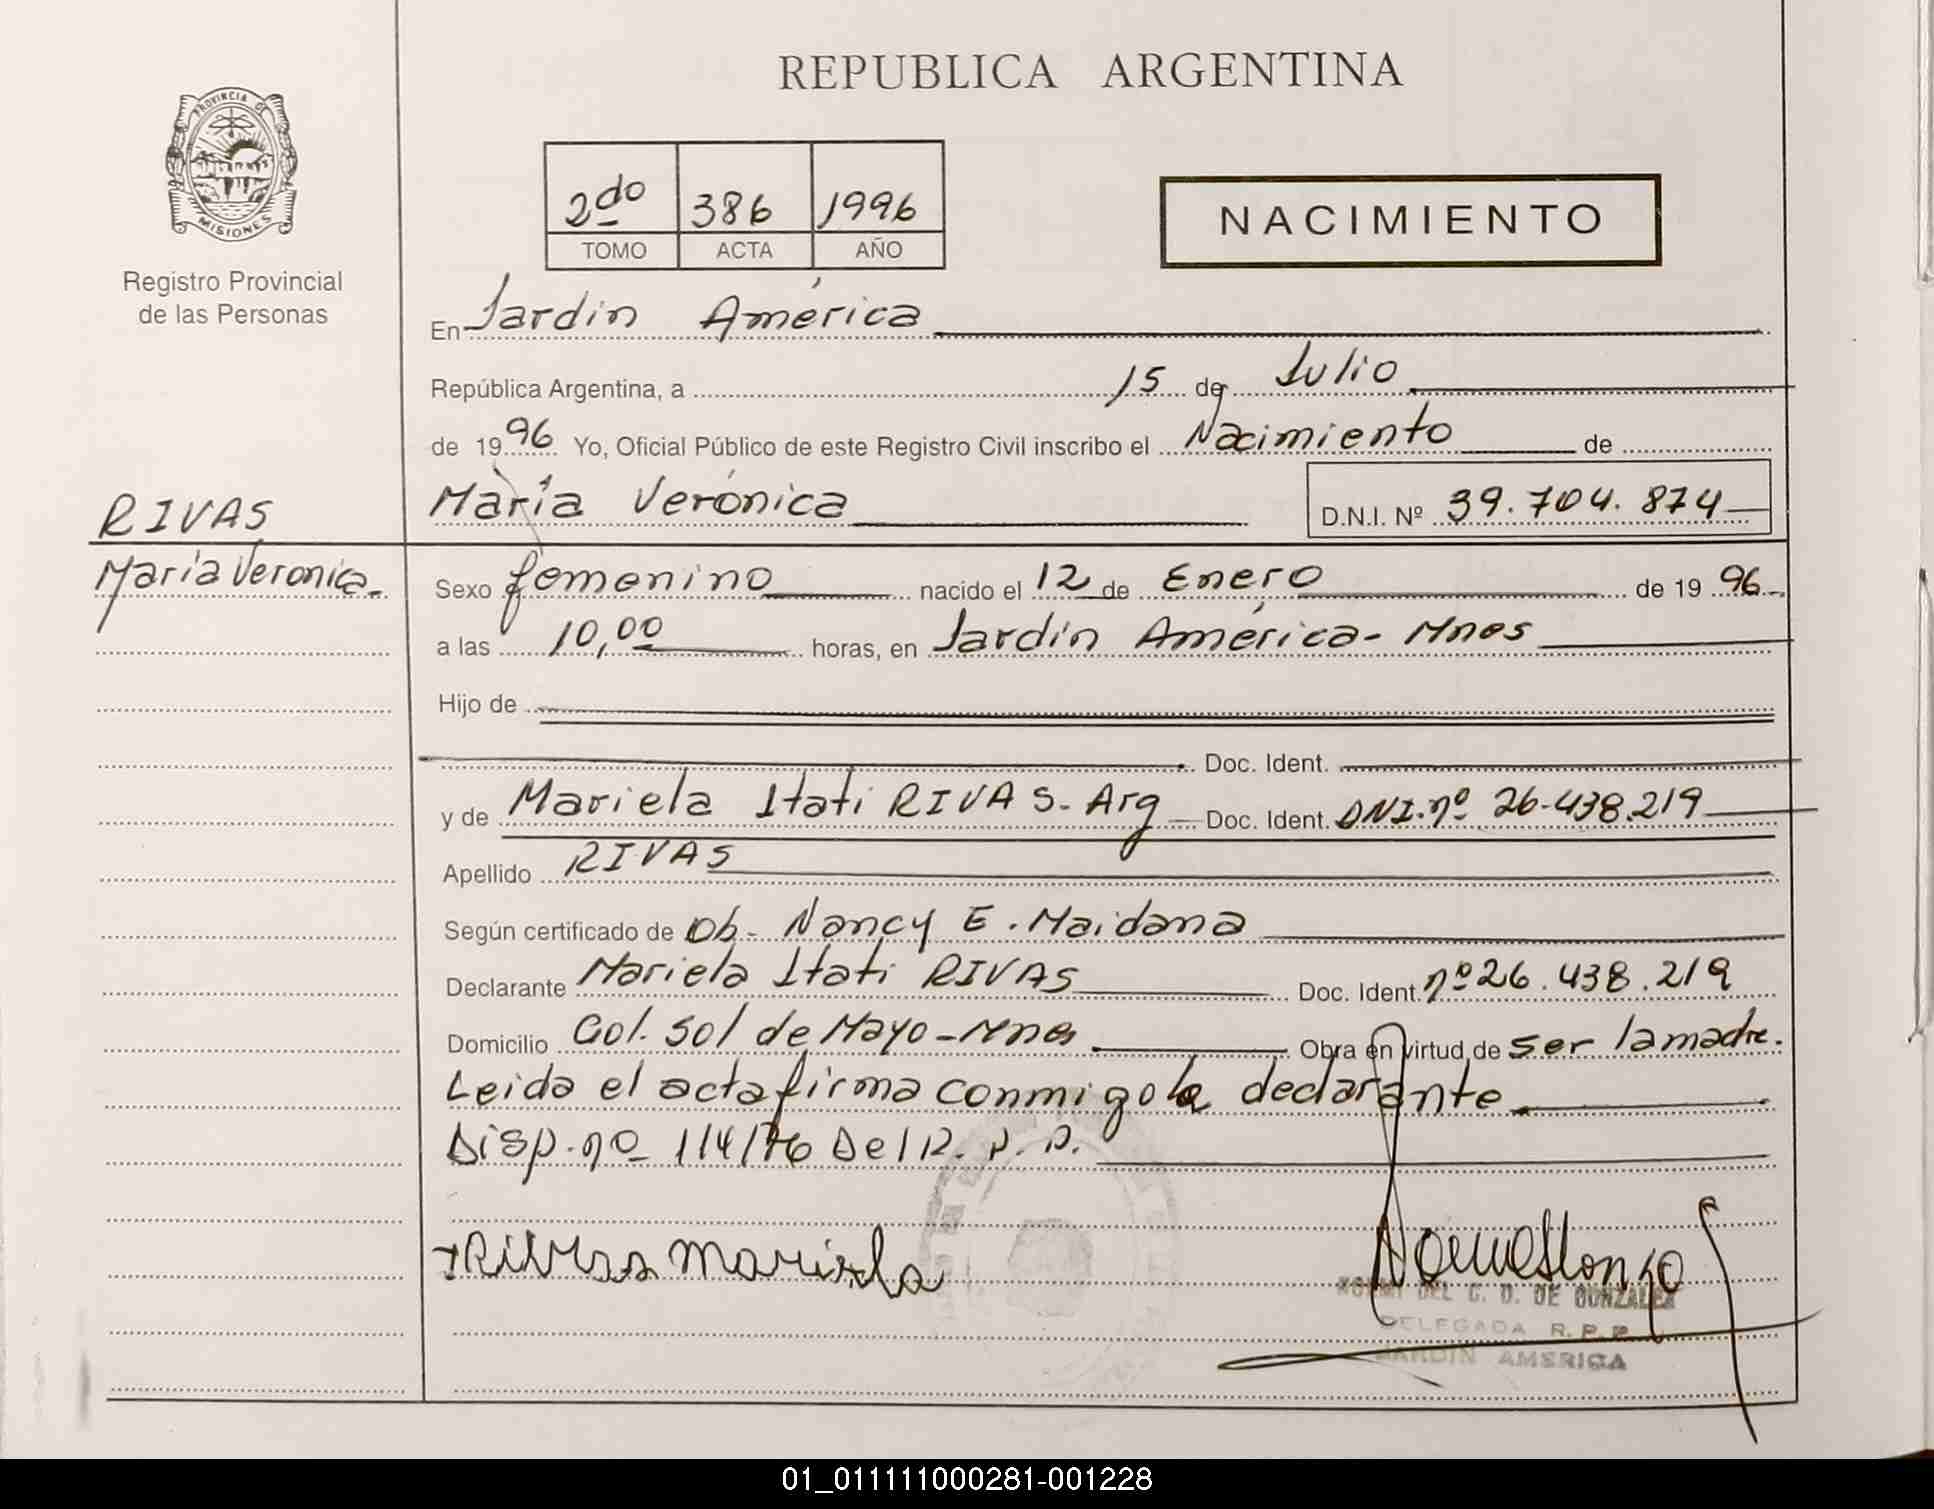 REPUBLICA ARGENTINA
PROVINCIA D
MISIONES
Registro Provincial
de las Personas
2do 386 1996
TOMO ACTA AÑO
NACIMIENTO
En Jardín América
República Argentina, a 15 de Julio
de 1996 Yo, Oficial Público de este Registro Civil inscribo el Nacimiento de
María Verónica D.N.I. Nº 39.704.874
RIVAS
María Veronica.
Sexo femenino nacido el 12 de Enero de 1996.
a las 10,00 horas, en Jardín América- Mnes
Hijo de
Doc. Ident.
y de Mariela Itatí RIVAS. Arg Doc. Ident. DNI.nº 26-438.219
Apellido RIVAS
Según certificado de Ob- Nancy E. Maidana
Declarante Mariela Itatí RIVAS Doc. Ident. nº 26.438.219
Domicilio Col. Sol de Mayo-Mnes Obra en virtud de ser la madre.
Leida el acta firma conmigo la declarante
Disp. nº 114/76 Del R. P. P.
Rivas Mariela
DEL C. D. DE GONZALEZ
DELEGADA R. P. P.
JARDIN AMERICA
01_011111000281-001228